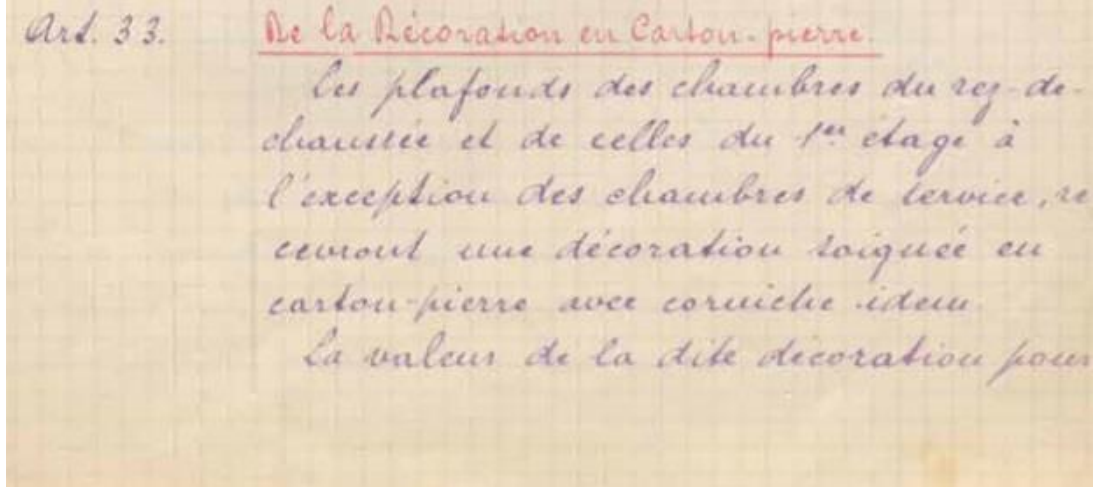 Art. 33. De la Décoration en Carton-pierre.
Les plafonds des chambres du rez-de-
chaussée et de celles du 1er étage à
l'exception des chambres de service, re
cevront une décoration soignée en
carton-pierre avec corniche idem.
La valeur de la dite décoration pour